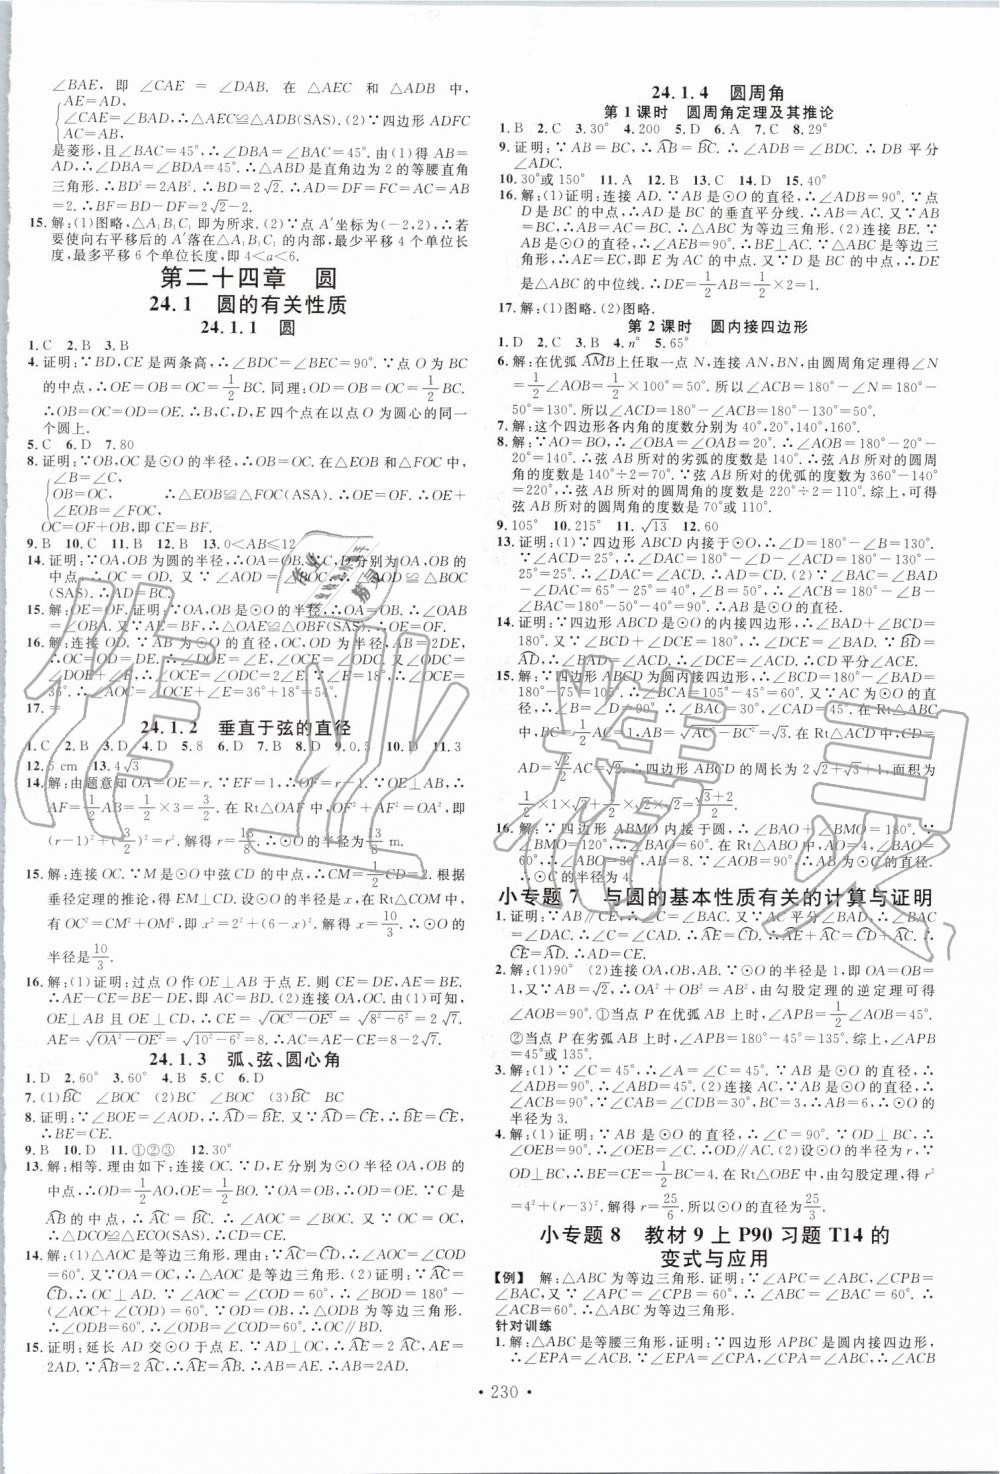 ∠BAE,即∠CAE=∠BAD.在△AEC和△ADB中,
AE=AD,
∠CAE=∠BAD,∴△AEC≌△ADB(SAS).(2)∵四边形ADFC
AC=AB,
是菱形,且∠BAC=45°,∴∠DBA=∠BAC=45°.由(1)得AB=
AD,∴∠DBA=∠BDA=45°.∴△ABD是直角边为2的等腰直角
三角形.∴BD²=2AB².∴BD=2√2.∴AD=DF=FC=AC=AB=
2.∴BF=BD-DF=2√2-2.
15.解:(1)图略,△A₁B₁C₁即为所求.(2)∵点A′坐标为(-2,2),∴若
要使向右平移后的A′落在△A₁B₁C₁的内部,最少平移4个单位长
度,最多平移6个单位长度,即4<a<6.
第二十四章 圆
24.1 圆的有关性质
24.1.1 圆
1.C 2.B 3.B
4.证明:∵BD,CE是两条高,∴∠BDC=∠BEC=90°.∵点O为BC
的中点,∴OE=OB=OC=1/2BC.同理:OD=OB=OC=1/2BC.
∴OB=OC=OD=OE.∴B,C,D,E四个点在以点O为圆心的同一
个圆上.
5.C 6.D 7.80
8.证明:∵OB,OC是⊙O的半径,∴OB=OC.在△EOB和△FOC中,
∠B=∠C,
OB=OC, ∴△EOB≌△FOC(ASA).∴OE=OF.∴OE+
∠EOB=∠FOC,
OC=OF+OB,即CE=BF.
9.B 10.C 11.B 12.B 13.0<AB≤12
14.证明:∵OA,OB为圆的半径,∴OA=OB.∵C,D分别为OA,OB的
中点,∴OC=OD.又∵∠AOD=∠BOC,∴△AOD≌△BOC
(SAS).∴AD=BC.
15.解:OE=OF.证明:∵OA,OB是⊙O的半径,∴OA=OB.∴∠OAB
=∠OBA.又∵AE=BF,∴△OAE≌△OBF(SAS).∴OE=OF.
16.解:连接OD.∵AB为⊙O的直径,OC,OD为半径,AB=2DE,
∴OC=OD=DE.∴∠DOE=∠E,∠OCE=∠ODC.又∵∠ODC=
∠DOE+∠E,∴∠OCE=∠ODC=2∠E.∵∠E=18°,∴∠OCE=
36°.∴∠AOC=∠OCE+∠E=36°+18°=54°.
17.
24.1.2 垂直于弦的直径
1.C 2.B 3.B 4.D 5.8 6.D 7.D 8.D 9.0.5 10.D 11.3
12.5 cm 13.4√3
14.解:由题意知OA=OE=r.∵EF=1,∴OF=OE-EF=r-1.∵OE⊥AB,∴
AF=1/2AB=1/2×3=3/2.在Rt△OAF中,OF²+AF²=OA²,即
(r-1)²+(3/2)²=r².解得r=13/8.∴⊙O的半径为13/8 m.
15.解:连接OC.∵M是⊙O中弦CD的中点,EM经过圆心O,∴根据
垂径定理的推论,得EM⊥CD.设⊙O的半径为x,在Rt△COM中,
有OC²=CM²+OM²,即x²=2²+(6-x)².解得x=10/3.∴⊙O的半径是
10/3.
16.解:(1)证明:过点O作OE⊥AB于点E.则CE=DE,AE=BE.
∴AE-CE=BE-DE,即AC=BD.(2)连接OC,OA.由(1)可知,
OE⊥AB且OE⊥CD,∴CE=√(OC²-OE²)=√(8²-6²)=2√7,
AE=√(OA²-OE²)=√(10²-6²)=8.∴AC=AE-CE=8-2√7.
24.1.3 弧、弦、圆心角
1.D 2.60° 3.60° 4.B 5.C 6.D
7.(1)B͡C ∠BOC (2)BC ∠BOC (3)B͡C BC
8.证明:∵∠BOE=∠AOD,∴A͡D=B͡E.又∵A͡D=C͡E,∴B͡E=C͡E.
∴BE=CE.
9.B 10.D 11.①②③ 12.30°
13.解:相等.理由如下:连接OC.∵D,E分别为⊙O半径OA,OB的
中点,∴OD=1/2AO,OE=1/2BO.∵OA=OB,∴OD=OE.∵C是
A͡B的中点,∴A͡C=B͡C.∴∠AOC=∠BOC.又∵OC=OC,
∴△DCO≌△ECO(SAS).∴CD=CE.
14.解:(1)△AOC是等边三角形.证明:∵A͡C=C͡D,∴∠AOC=∠COD
=60°.又∵OA=OC,∴△AOC是等边三角形.(2)证明:∵A͡C=
C͡D,∴OC⊥AD.∵∠AOC=∠COD=60°,∴∠BOD=180°-
(∠AOC+∠COD)=60°.∵OD=OB,∴△ODB为等边三角形.
∴∠ODB=60°.∴∠ODB=∠COD=60°.∴OC∥BD.
15.证明:延长AD交⊙O于点E.∵OD⊥AE,∴A͡E=2A͡B,AE=
2AD.∵A͡C=2A͡B,∴A͡E=A͡C.∴AC=AE.∴AC=2AD.
24.1.4 圆周角
第1课时 圆周角定理及其推论
1.B 2.C 3.30° 4.200 5.D 6.A 7.C 8.29°
9.证明:∵AB=BC,∴A͡B=B͡C.∴∠ADB=∠BDC.∴DB平分
∠ADC.
10.30°或150° 11.A 12.B 13.C 14.D 15.40°
16.解:(1)证明:连接AD.∵AB是⊙O的直径,∴∠ADB=90°.∵点
D是BC的中点,∴AD是BC的垂直平分线.∴AB=AC.又∵AC=
BC,∴AB=AC=BC.∴△ABC为等边三角形.(2)连接BE.∵AB
是⊙O的直径,∴∠AEB=90°.∴BE⊥AC.∵△ABC是等边三角
形,∴AE=EC,即E为AC的中点.又∵D是BC的中点,∴DE是
△ABC的中位线.∴DE=1/2AB=1/2×2=1.
17.解:(1)图略.(2)图略.
第2课时 圆内接四边形
1.D 2.C 3.B 4.n° 5.65°
6.解:在优弧A͡MB上任取一点N,连接AN,BN,由圆周角定理得∠N
=1/2∠AOB=1/2×100°=50°.所以∠ACB=180°-∠N=180°-
50°=130°.所以∠ACD=180°-∠ACB=180°-130°=50°.
7.解:这个四边形各内角的度数分别为40°,20°,140°,160°.
8.解:∵AO=BO,∴∠OBA=∠OAB=20°.∴∠AOB=180°-20°
-20°=140°.∴弦AB所对的劣弧的度数是140°.∴弦AB所对的圆周
角的度数是140°÷2=70°.∵弦AB所对的优弧的度数为360°-140°
=220°,∴弦AB所对的圆周角的度数是220°÷2=110°.综上,可得
弦AB所对的圆周角的度数是70°或110°.
9.105° 10.215° 11.√13 12.60
13.证明:(1)∵四边形ABCD内接于⊙O,∴∠DAB=180°-∠C=
∵∠ACD=25°,∴∠DAC=180°-∠D-∠ACD=180°-130°-
25°=25°.∴∠DAC=∠ACD.∴DA=CD.(2)∵∠BAC=∠BAD
-∠DAC=65°-25°=40°,∠B=50°,∴∠ACB=180°-∠B-
∠BAC=180°-50°-40°=90°.∴AB是⊙O的直径.
14.证明:∵四边形ABCD是⊙O的内接四边形,∴∠BAD+∠BCD=
180°.又∵∠BCD+∠DCE=180°,∴∠DCE=∠BAD.∵B͡D=
A͡D,∴∠BAD=∠ACD.∴∠DCE=∠ACD.∴CD平分∠ACE.
16.解:∵四边形ABMO内接于圆,∴∠BAO+∠BMO=180°.∵
∠BMO=120°,∴∠BAO=60°.在Rt△ABO中,AO=4,∠BAO=
小专题7 与圆的基本性质有关的计算与证明
1.证明:∵AD平分∠BAC,∴∠BAD=∠DAC.又∵∠BAC
=∠DAC,∴∠C=∠CAD.∴A͡E=C͡D.∴A͡E+D͡E=C͡D+D͡E.∴A͡D=
C͡E.∴AD=CE.
2.解:(1)90° (2)连接OA,OB,AB.∵⊙O的半径是1,即OA=OB=
1.又∵AB=√2,∴OA²+OB²=AB²,由勾股定理的逆定理可得
∠AOB=90°.①当点P在优弧AB上时,∠APB=1/2∠AOB=45°;
②当点P在劣弧AB上时,∠APB=180°-45°=135°.
3.解:(1)证明:∵∠C=45°,∴∠A=∠C=45°.∵∠ABD=45°,∴
∠ADB=90°.∴AB是⊙O的直径.(2)连接CD.∵BD是直径,∴
∠BCD=90°.∵∠ACB=30°,∴∠CDB=30°.BC=3,∴BD=6,∴⊙O的
半径为3.
4.解:(1)证明:∵AB是⊙O的直径,∴∠C=90°.∵OD⊥BC,∴
∠OEB=90°.∴∠OEB=∠C.∴OD∥AC.(2)设⊙O的半径为r,∵
OD⊥BC,∴BE=CE=1/2BC=4.在Rt△OEB中,由勾股定理,得r²
=4²+(r-3)².解得r=25/6.所以⊙O的直径为25/3.
小专题8 教材9上P90习题T14的
变式与应用
【例】 解:△ABC为等边三角形.证明:∵∠APC=∠ABC,∠CPB=
∠BAC,∠APC=∠CPB=60°,∴∠ABC=∠BAC=60°.∴
∠ACB=60°.∴△ABC为等边三角形.
针对训练
1.解:△ABC是等腰三角形,证明:∵四边形APBC是圆内接四边形,
∴∠EPA=∠ACB.∵∠EPA=∠CPA,∠CPA=∠ABC,∴∠ACB
·230·